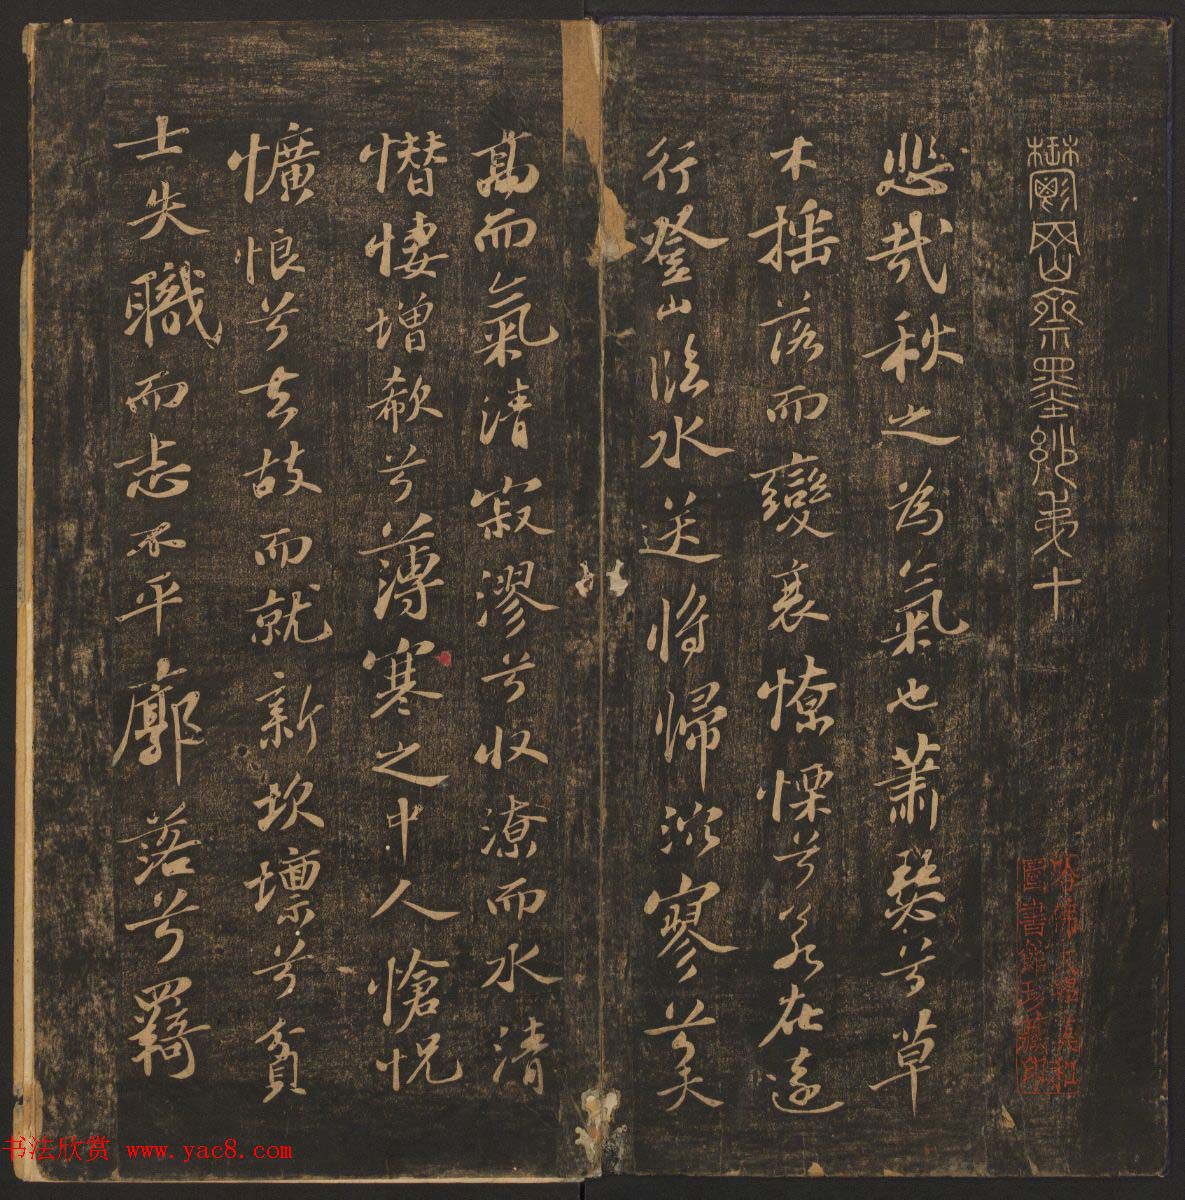 鬱岡齋墨妙弟十
哈佛大學漢和
圖書館珍藏印
悲哉秋之為氣也蕭瑟兮草
木搖落而變衰憭慄兮若在遠
行登山臨水送將歸泬寥兮天
高而氣清寂漻兮收潦而水清
憯悽增欷兮薄寒之中人愴怳
懭悢兮去故而就新坎壈兮貧
士失職而志不平廓落兮羇
书法欣赏 www.yac8.com